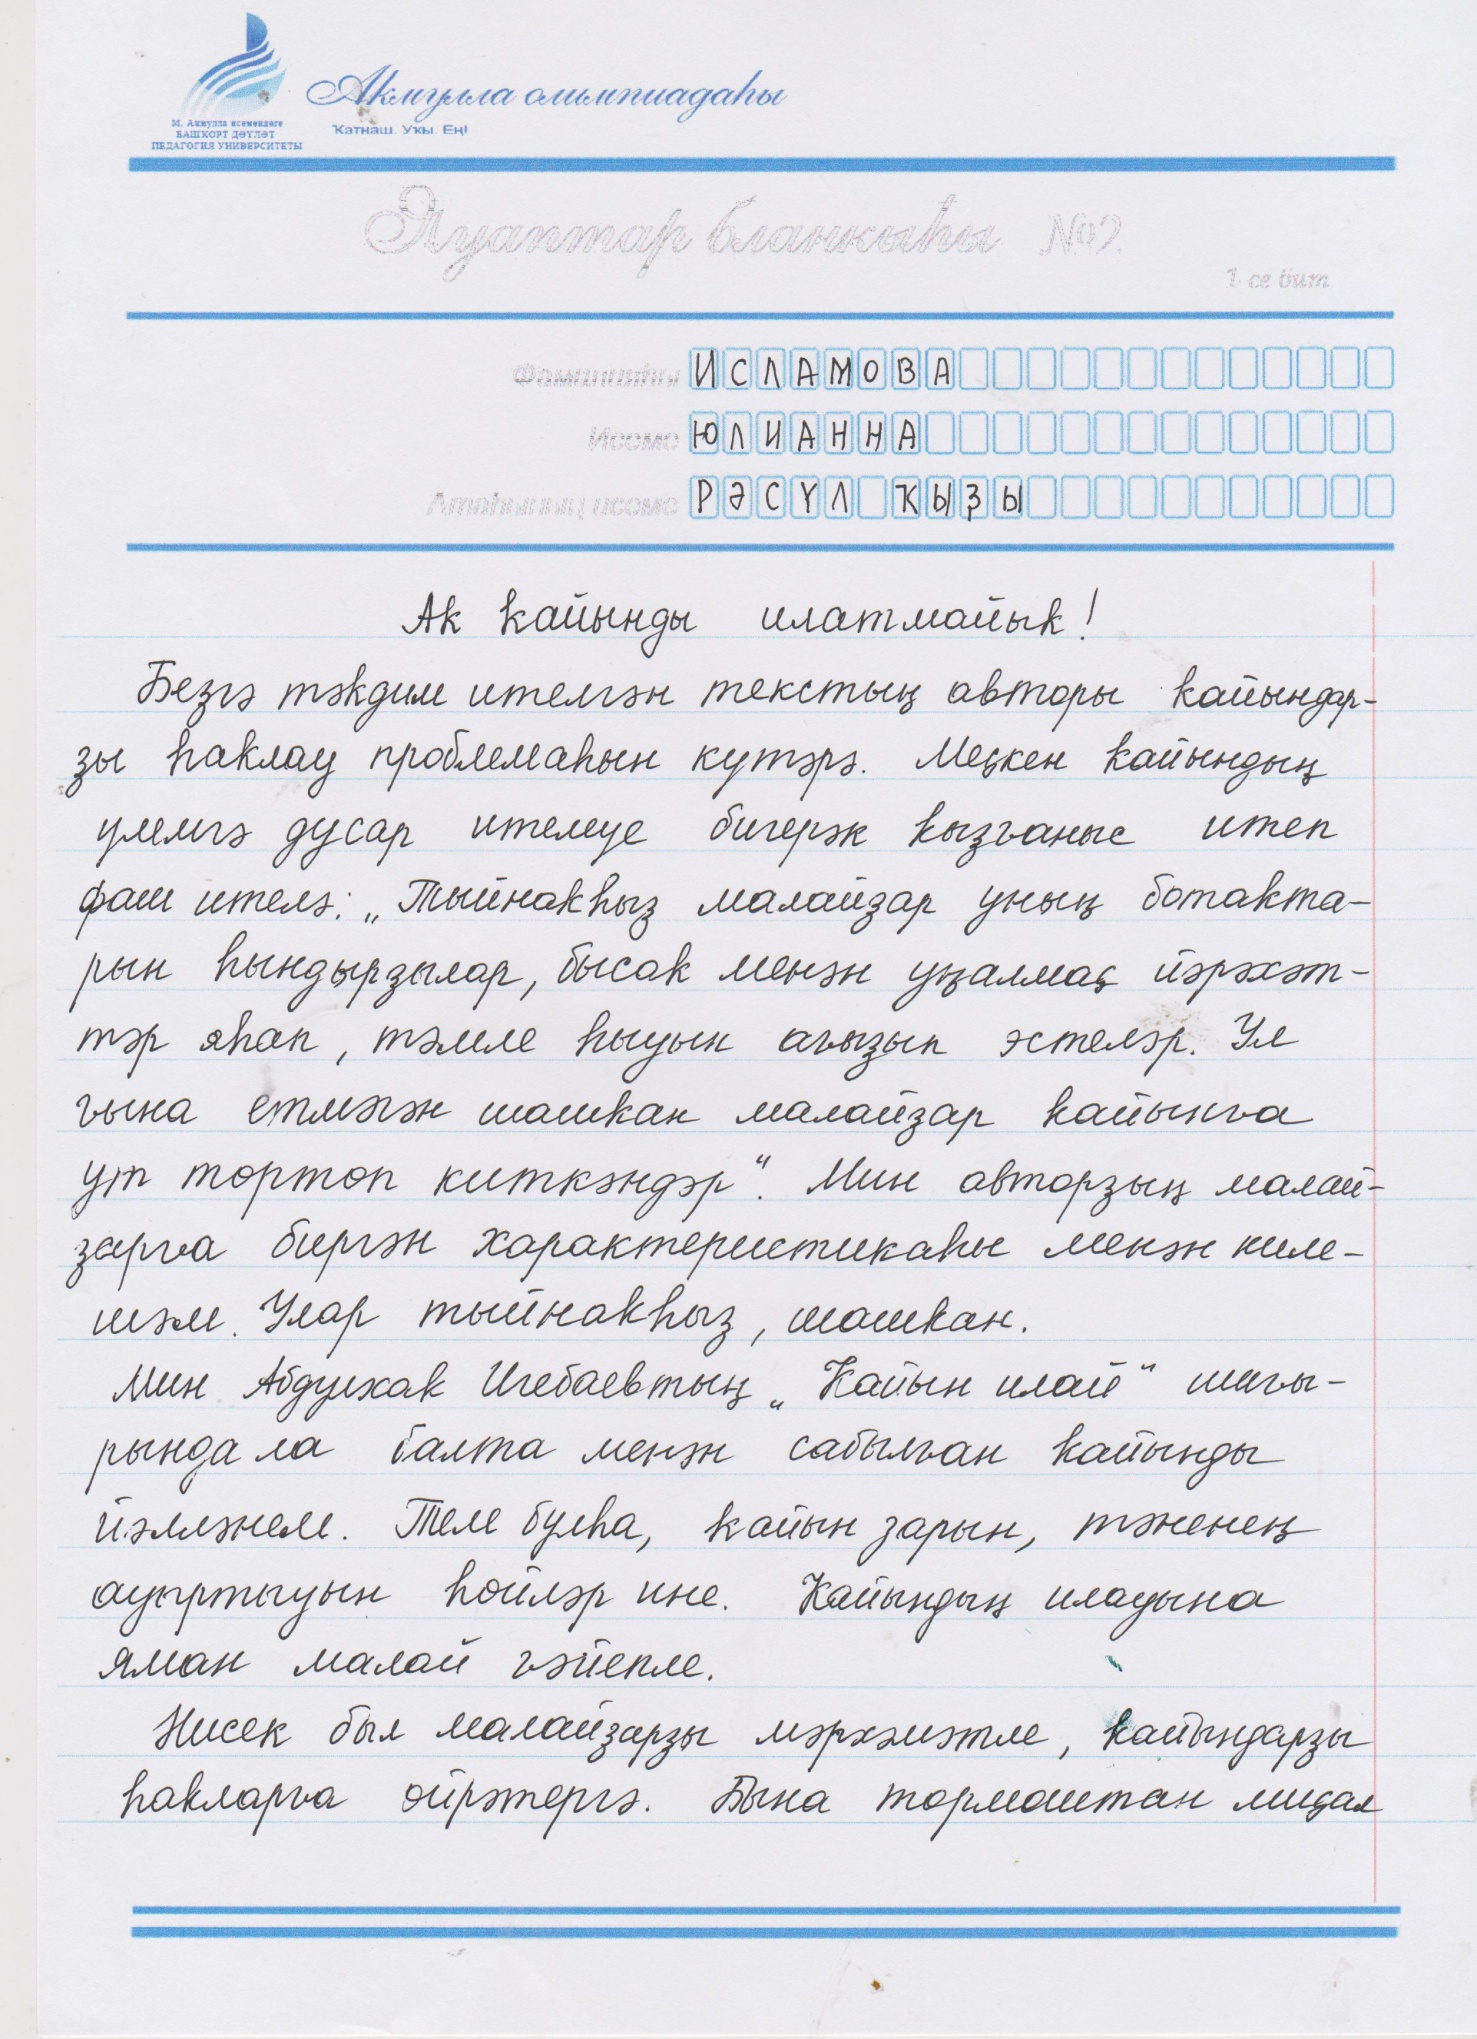 М. Аҡмулла исемендәге
БАШҠОРТ ДӘҮЛӘТ
ПЕДАГОГИЯ УНИВЕРСИТЕТЫ
Аҡмулла олимпиадаһы
Ҡатнаш. Уҡы. Ең!
Яуаптар бланкыһы №2
1-се бит
Фамилияһы ИСЛАМОВА
Исеме ЮЛИАННА
Атаһының исеме РӘСҮЛ ҠЫҘЫ
Аҡ ҡайынды илатмайыҡ!
Беҙгә тәҡдим ителгән текстың авторы ҡайындар-
ҙы һаҡлау проблемаһын күтәрә. Меҫкен ҡайындың
үлемгә дусар ителеүе бигерәк ҡыҙғаныс итеп
фаш ителә: „Тыйнаҡһыҙ малайҙар уның ботаҡта-
рын һындырҙылар, бысаҡ менән уңалмаҫ йәрәхәт-
тәр яһап, тәмле һыуын ағыҙып эстеләр. Ул
ғына етмәгән шашҡан малайҙар ҡайынға
ут төртөп киткәндәр“. Мин авторҙың малай-
ҙарға биргән характеристикаһы менән киле-
шәм. Улар тыйнаҡһыҙ, шашҡан.
Мин Абдулхаҡ Игебаевтың „Ҡайын илай“ шиғы-
рында ла балта менән сабылған ҡайынды
йәлләнем. Теле булһа, ҡайын зарын, тәненең
ауыртыуын һөйләр ине. Ҡайындың илауына
яман малай ғәйепле.
Нисек был малайҙарҙы мәрхәмәтле, ҡайындарҙы
һаҡларға өйрәтергә. Бына тормоштан миҫал